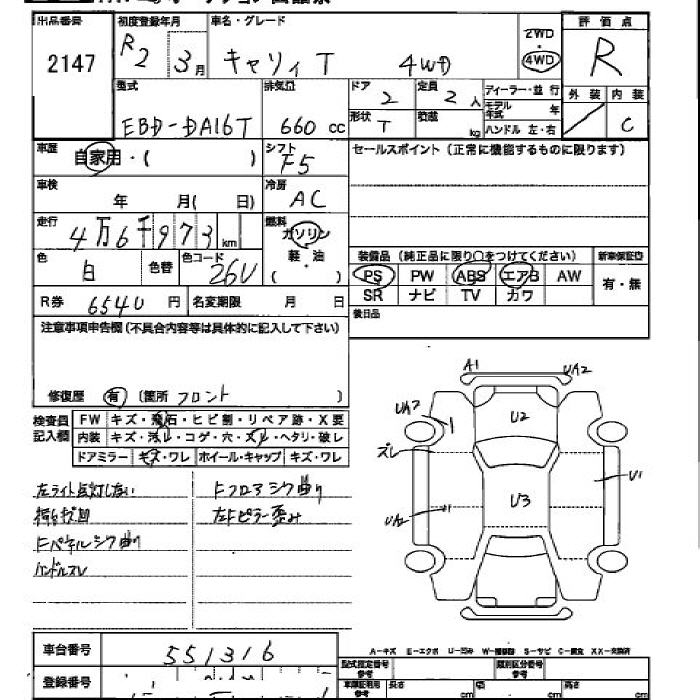 出品番号 初度登録年月 車名・グレード 2WD・4WD 評価点
2147 R2 3月 キャリィT 4WD R
型式 排気量 ドア 2 定員 2人 ディーラー・並行 外装 内装
EBD-DA16T 660cc 形状 T 積載 kg モデル年式 年 ハンドル 左・右 / C
車歴 自家用・( ) シフト F5 セールスポイント(正常に機能するものに限ります)
車検 年 月( 日) 冷房 AC
走行 4万6千973km 燃料 ガソリン 軽・油 ( )
色 白 色替 色コード 26U
装備品(純正品に限り○をつけてください) 新車保証書
PS PW ABS エアB AW 有・無
SR ナビ TV カワ
R券 6540円 名変期限 月 日 後日品
注意事項申告欄(不具合内容等は具体的に記入して下さい)
修復歴 有 (箇所 フロント )
検査員記入欄 FW キズ・飛石・ヒビ割・リペア跡・X要
内装 キズ・汚レ・コゲ・穴・スレ・ヘタリ・破レ
ドアミラー キズ・ワレ ホイール・キャップ キズ・ワレ
左ライト点灯しない Fフロアシワ曲り
左Fピラー歪み
Fパネルシワ曲り
ハンドルスレ
A1 UA2
UA2 U2
ズレ U1
UA2 U3
A-キズ E-エクボ U-凹み W-補修跡 S-サビ C-腐食 XX-交換済
車台番号 551316 型式指定番号 参考 類別区分番号 参考
登録番号 車庫証明用 参考 長さ cm 幅 cm 高さ cm